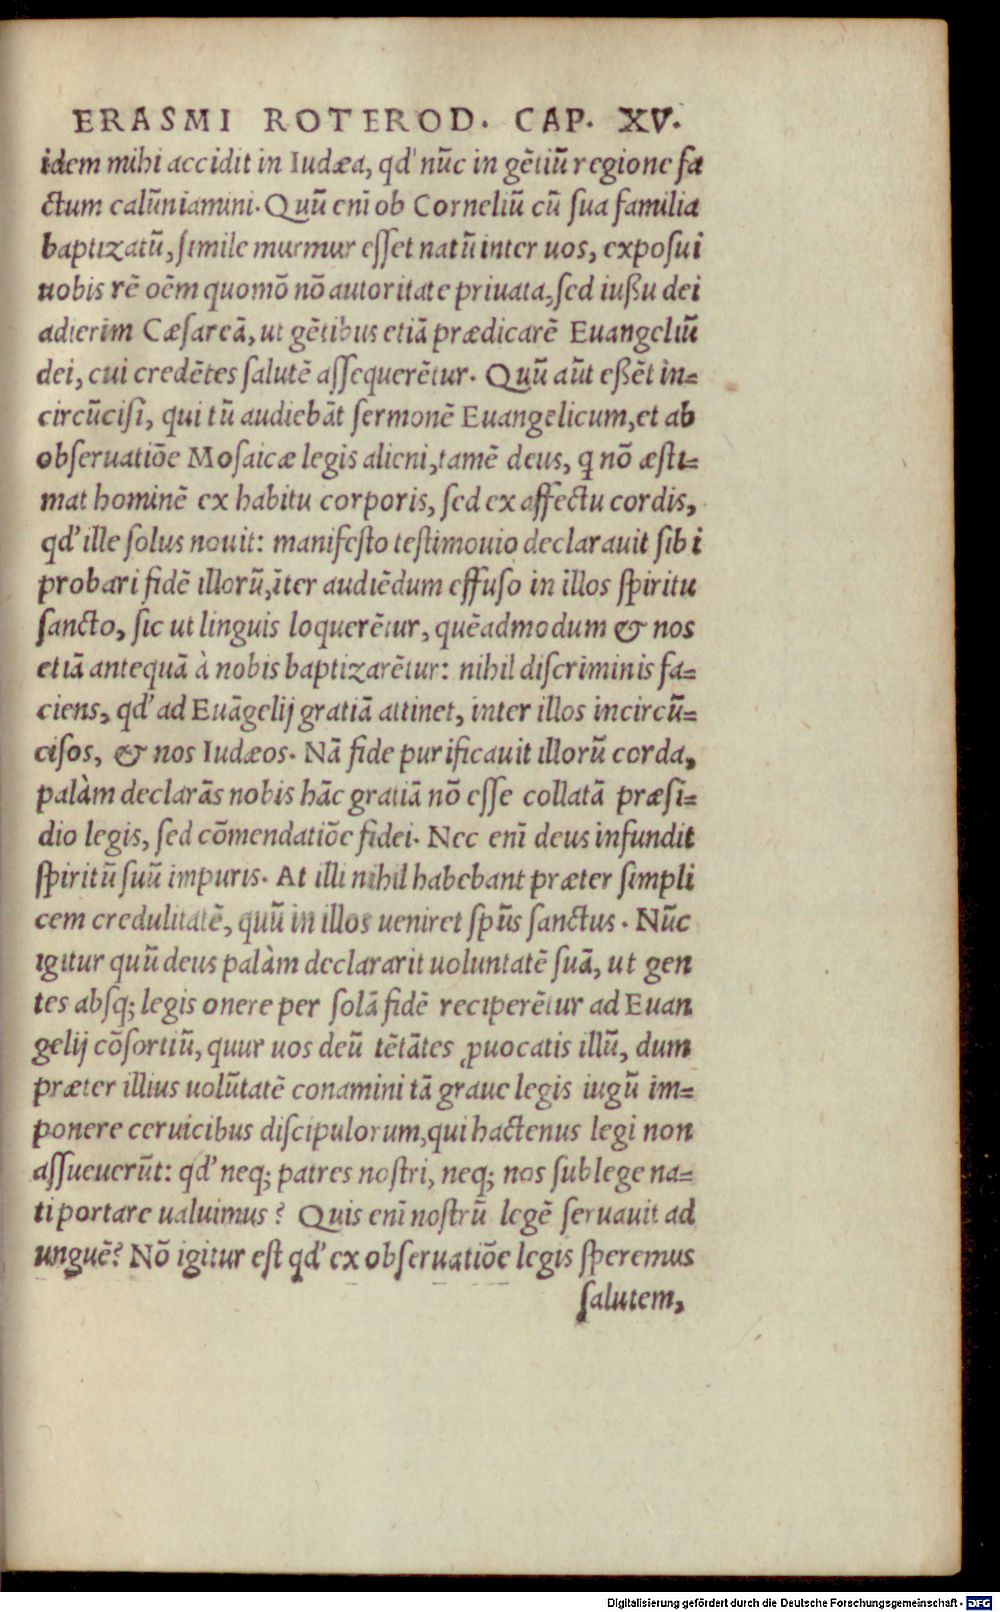 ERASMI ROTEROD. CAP. XV.
idem mihi accidit in Iudæa, qd' nũc in gẽtiũ regione fa
ctum calũniamini. Quũ enĩ ob Corneliũ cũ sua familia
baptizatũ, simile murmur esset natũ inter uos, exposui
uobis rẽ oẽm quomõ nõ autoritate priuata, sed iußu dei
adierim Cæsareã, ut gẽtibus etiã prædicarẽ Euangeliũ
dei, cui credẽtes salutẽ assequerẽtur. Quũ aũt eßẽt in=
circũcisi, qui tũ audiebãt sermonẽ Euangelicum, et ab
obseruatiõe Mosaicæ legis alieni, tamẽ deus, q nõ æsti=
mat hominẽ ex habitu corporis, sed ex affectu cordis,
qd' ille solus nouit: manifesto testimouio declarauit sibi
probari fidẽ illorũ, ĩter audiẽdum effuso in illos spiritu
sancto, sic ut linguis loquerẽtur, quẽadmodum & nos
etiã antequã à nobis baptizarẽtur: nihil discriminis fa=
ciens, qd' ad Euãgelij gratiã attinet, inter illos incircũ=
cisos, & nos Iudæos. Nã fide purificauit illorũ corda,
palàm declarãs nobis hãc gratiã nõ esse collatã præsi=
dio legis, sed cõmendatiõe fidei. Nec enĩ deus infundit
spiritũ suũ impuris. At illi nihil habebant præter simpli
cem credulitatẽ, quũ in illos ueniret spũs sanctus. Nũc
igitur quũ deus palàm declararit uoluntatẽ suã, ut gen
tes absq; legis onere per solã fidẽ reciperẽtur ad Euan
gelij cõsortiũ, quur uos deũ tẽtãtes ꝓuocatis illũ, dum
præter illius uolũtatẽ conamini tã graue legis iugũ im=
ponere ceruicibus discipulorum, qui hactenus legi non
assueuerũt: qd' neq; patres nostri, neq; nos sub lege na=
ti portare ualuimus? Quis enĩ nostrũ legẽ seruauit ad
unguẽ? Nõ igitur est qd' ex obseruatiõe legis speremus
salutem,
Digitalisierung gefördert durch die Deutsche Forschungsgemeinschaft - DFG